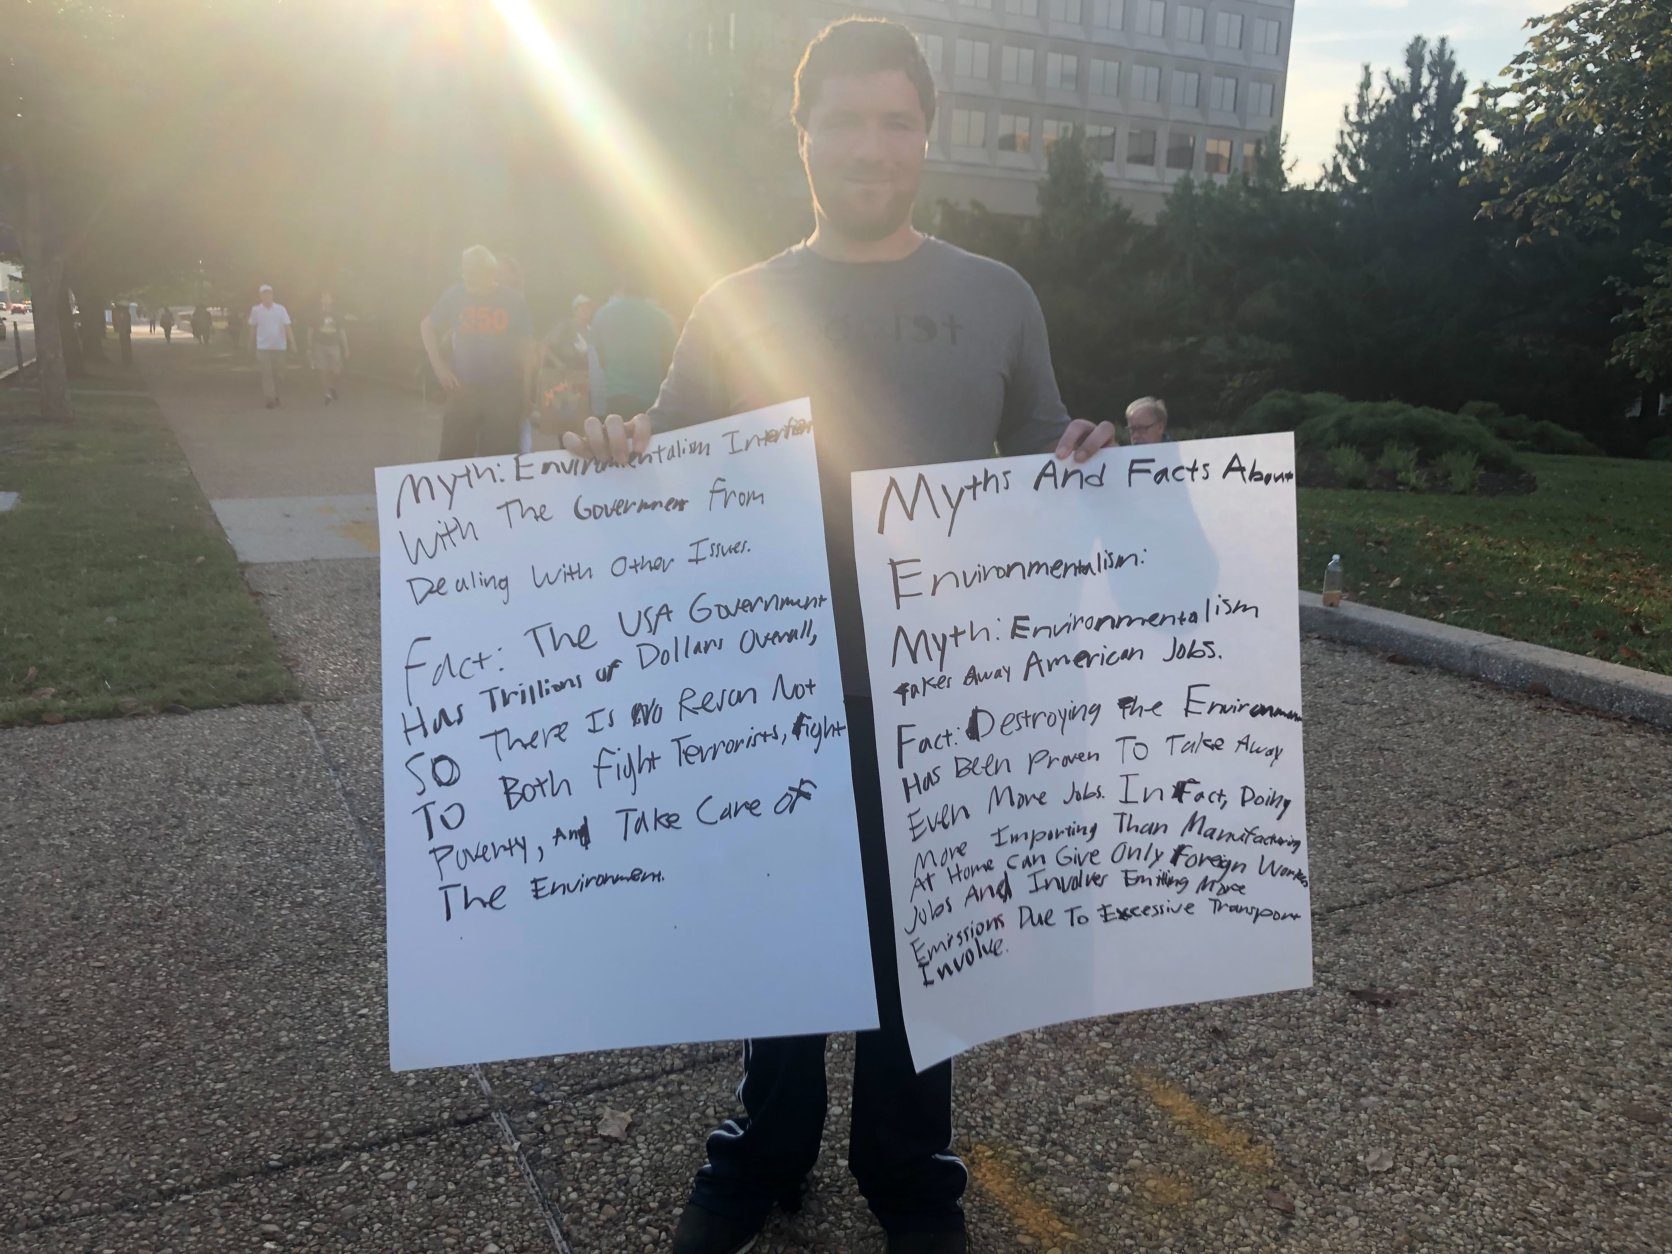 Myth: Environmentalism
With The Government From
Dealing With Other Issues.
Fact: The USA Government
Has Trillions of Dollars Overall,
So There Is No Reason Not
To Both Fight Terrorists, Fight
Poverty, And Take Care of
The Environment.
Myths And Facts About
Environmentalism:
Myth: Environmentalism
takes Away American Jobs.
Fact: Destroying The Environment
Has Been Proven To Take Away
Even More Jobs. In Fact, Doing
More Importing Than Manufacturing
At Home Can Give Only Foreign Workers
Jobs And Involves Emitting More
Emissions Due To Excessive Transport
Involve.
350